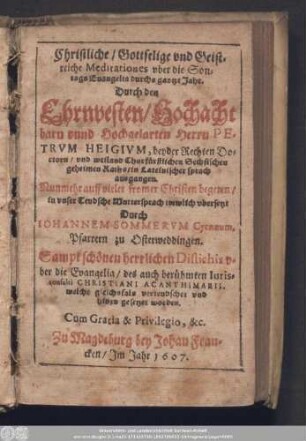 Christliche / Gottselige vnd Geist-
reiche Meditationes vber die Son-
tags Euangelia durchs gantze Jahr.
Durch den
Ehrnvesten / Hochacht
barn vnnd Hochgelarten Herrn PE-
TRVM HEIGIVM, beyder Rechten Do-
ctorn / vnd weiland Churfürstlichen Sächsischen
geheimen Raths / in Lateinischer sprach
ausgangen.
Nunmehr auff vieler fromer Christen begeren /
in vnser Teudsche Muttersprach trewlich vbersetzt
Durch
IOHANNEM SOMMERVM Cycnæum,
Pfarrern zu Osterweddingen.
Sampt schönen herrlichen Distichis v-
ber die Evangelia / des auch berühmten Iuris-
consulti CHRISTIANI ACANTHIMARII.
welche gleichsfals verteudschet vnd
gesetzet worden.
Cum Gratia & Privilegio, &c.
Zu Magdeburg bey Johan Fran-
cken / Im Jahr 1607.